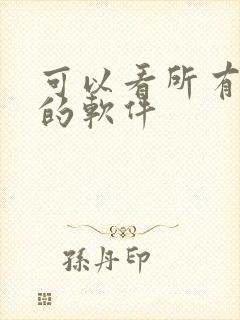 可以看所有
的軟件
孫丹印